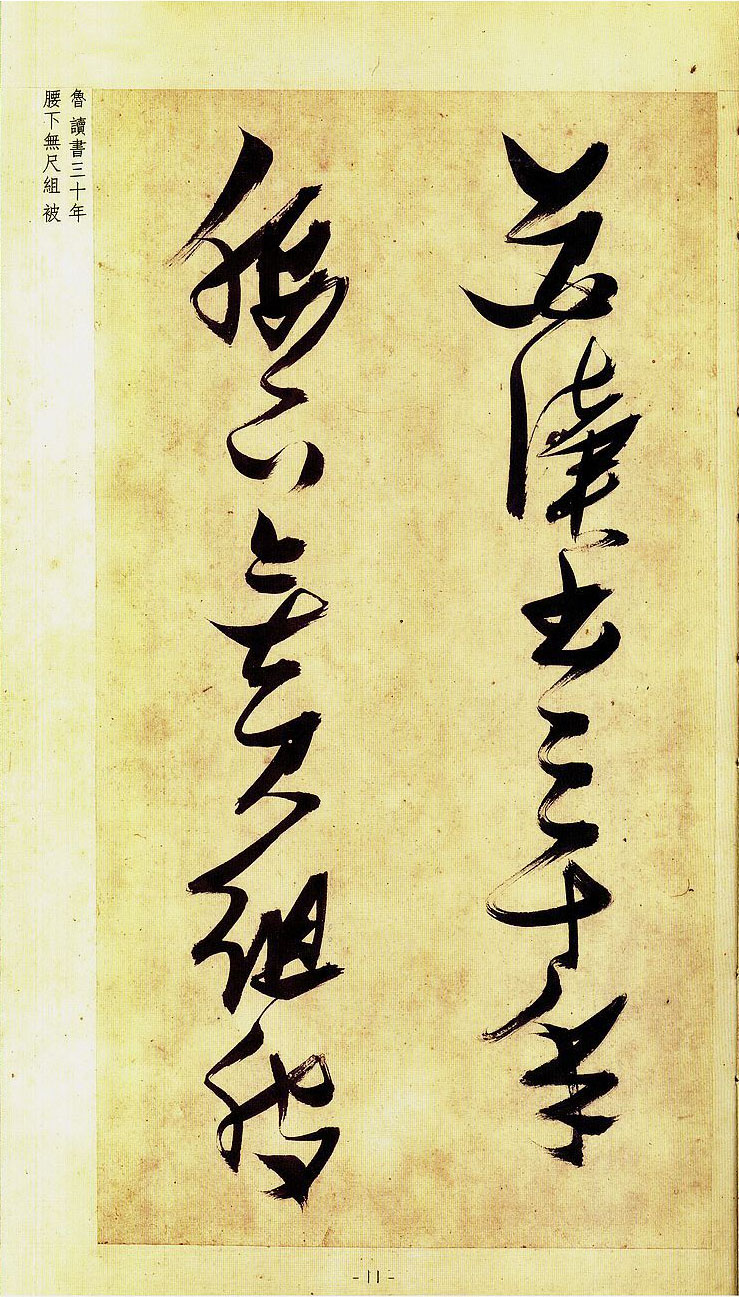 魯讀書三十年
腰下無尺組被
魯 讀書三十年
腰下無尺組 被
- 11 -